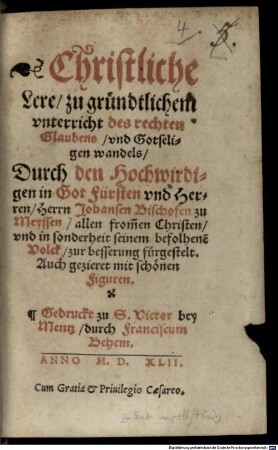 4.
Christliche
Lere/ zu gründtlichem
vnterricht des rechten
Glaubens/ vnd Gotseli-
gen wandels/
Durch den Hochwirdi-
gen in Got Fürsten vnd Her-
ren/ Herrn Johansen Bischofen zu
Meyssen/ allen from̃en Christen/
vnd in sonderheit seinem befolhenẽ
Volck/ zur besserung fürgestelt.
Auch gezieret mit schönen
Figuren.
¶ Gedruckt zu S. Victor bey
Mentz/ durch Franciscum
Behem.
ANNO M. D. XLII.
Cum Gratia & Priuilegio Cæsareo.